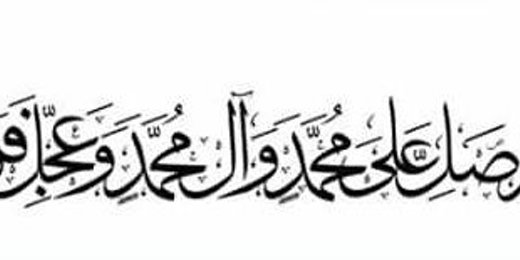 صَلِّ عَلَى مُحَمَّدٍ وَآلِ مُحَمَّدٍ وَعَجِّلْ